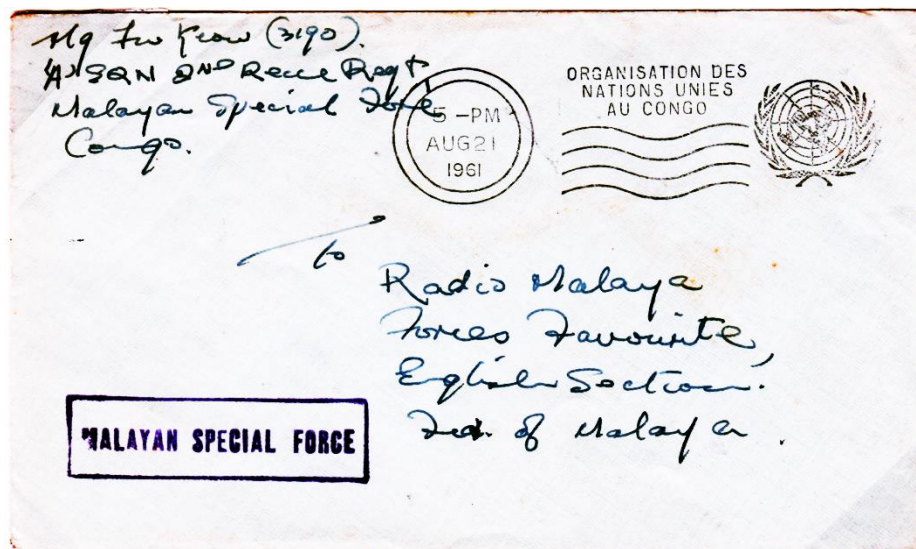 Ng Fw Keow (3190).
'A' SQN 2ND Recce Regt
Malayan Special Force
Congo.
5 -PM
AUG 21
1961
ORGANISATION DES
NATIONS UNIES
AU CONGO
To
Radio Malaya
Forces Favourite,
English Section.
Fed. of Malaya.
MALAYAN SPECIAL FORCE